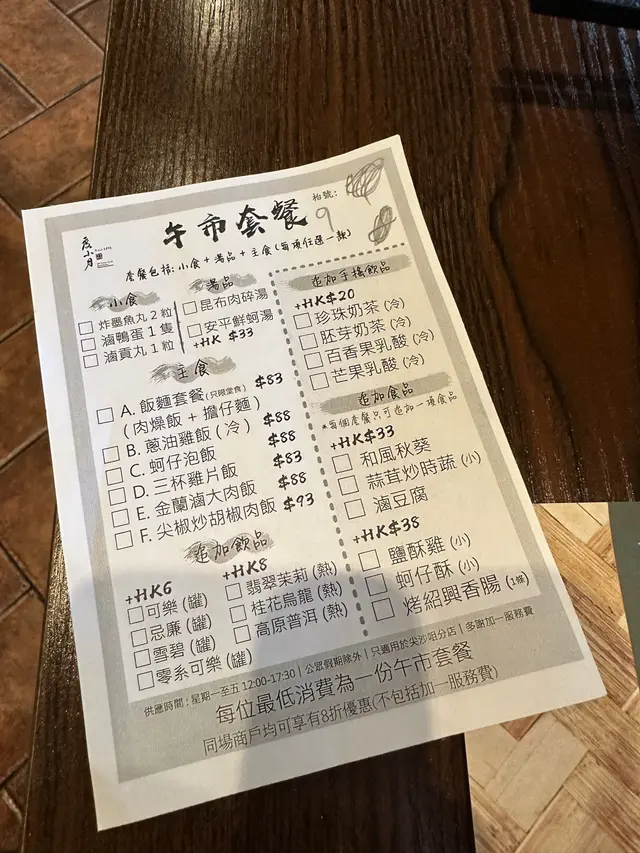 度小月
午市套餐
枱號：
9
套餐包括：小食 + 湯品 + 主食(每項任選一款)
小食
炸墨魚丸 2 粒
滷鴨蛋 1 隻
滷貢丸 1 粒
湯品
昆布肉碎湯
安平鮮蚵湯
+HK $33
主食
A. 飯麵套餐(只限堂食) $83
(肉燥飯 + 擔仔麵)
B. 蔥油雞飯 (冷) $88
C. 蚵仔泡飯 $88
D. 三杯雞片飯 $83
E. 金蘭滷大肉飯 $88
F. 尖椒炒胡椒肉飯 $93
追加飲品
+HK6
可樂 (罐)
忌廉 (罐)
雪碧 (罐)
零系可樂 (罐)
+HK8
翡翠茉莉 (熱)
桂花烏龍 (熱)
高原普洱 (熱)
追加手搖飲品
+HK$20
珍珠奶茶 (冷)
胚芽奶茶 (冷)
百香果乳酸 (冷)
芒果乳酸 (冷)
追加食品
*每個套餐只可追加一項食品
+HK$33
和風秋葵
蒜茸炒時蔬 (小)
滷豆腐
+HK$38
鹽酥雞 (小)
蚵仔酥 (小)
烤紹興香腸 (1條)
供應時間：星期一至五 12:00-17:30 | 公眾假期除外 | 只適用於尖沙咀分店 | 多謝加一服務費
每位最低消費為一份午市套餐
同場商戶均可享有8折優惠(不包括加一服務費)